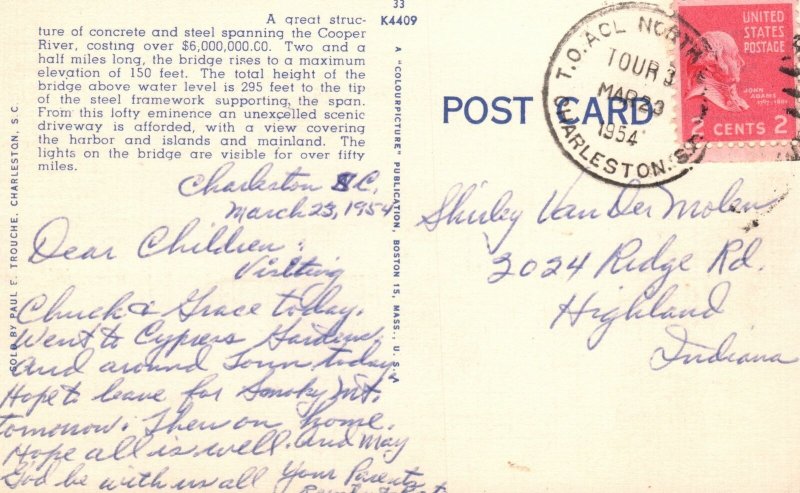 33
K4409
A great struc-
ture of concrete and steel spanning the Cooper
River, costing over $6,000,000.00. Two and a
half miles long, the bridge rises to a maximum
elevation of 150 feet. The total height of the
bridge above water level is 295 feet to the tip
of the steel framework supporting, the span.
From this lofty eminence an unexcelled scenic
driveway is afforded, with a view covering
the harbor and islands and mainland. The
lights on the bridge are visible for over fifty
miles.
SOLD BY PAUL E. TROUCHE, CHARLESTON, S.C.
A "COLOURPICTURE" PUBLICATION, BOSTON 15, MASS., U.S.A
POST CARD
T.O. ACL NORTH
TOUR 3
MAR 23
1954
CHARLESTON, S.C.
UNITED
STATES
POSTAGE
JOHN
ADAMS
2 CENTS 2
Charleston S.C.
March 23, 1954
Dear Children:
Visiting
Chuck & Grace today.
Went to Cypress Gardens
and around town today
Hope to leave for Smoky Mt.
tomorrow. Then on home.
Hope all is well. And May
God be with us all Your Parents
Shirley Van Der Molen
2024 Ridge Rd.
Highland
Indiana